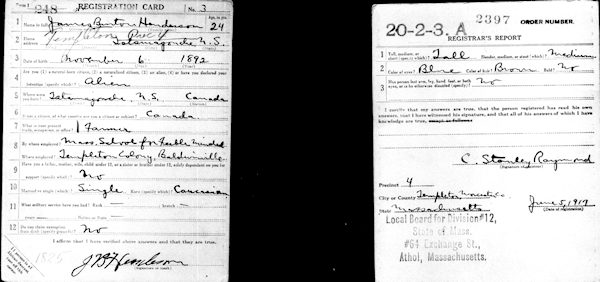 Form 1 248 REGISTRATION CARD No. 3
1 Name in full James Burton Henderson 24
2 Home address Templeton Prec 4 Tatamagouche N.S.
3 Date of birth November 6 1892
4 Are you (1) a natural-born citizen, (2) a naturalized citizen, (3) an alien, (4) or have you declared your
intention (specify which)? Alien
5 Where were you born? Tatamagouche, N.S. Canada
6 If not a citizen, of what country are you a citizen or subject? Canada
7 What is your present trade, occupation, or office? Farmer
8 By whom employed? Mass. School for Feeble Minded
Where employed? Templeton Colony, Baldwinville
9 Have you a father, mother, wife, child under 12, or a sister or brother under 12, solely dependent on you for
support (specify which)? No
10 Married or single (which)? Single Race (specify which)? Caucasian
11 What military service have you had? Rank — branch —
years Nation or State —
12 Do you claim exemption from draft (specify grounds)? No
I affirm that I have verified above answers and that they are true.
1825
J B Henderson
(Signature or mark)
20-2-3. A 2397 ORDER NUMBER.
REGISTRAR'S REPORT
1 Tall, medium, or short (specify which)? Tall Slender, medium, or stout (which)? Medium
2 Color of eyes? Blue Color of hair? Brown Bald? No
3 Has person lost arm, leg, hand, foot, or both eyes, or is he otherwise disabled (specify)? No
I certify that my answers are true, that the person registered has read his own
answers, that I have witnessed his signature, and that all of his answers of which I have
knowledge are true, except as follows:
C. Stanley Raymond
(Signature of registrar)
Precinct 4
City or County Templeton Worcester Co.
State Massachusetts June 5, 1917
(Date of registration)
Local Board for Division #12,
State of Mass.
#64 Exchange St.,
Athol, Massachusetts.